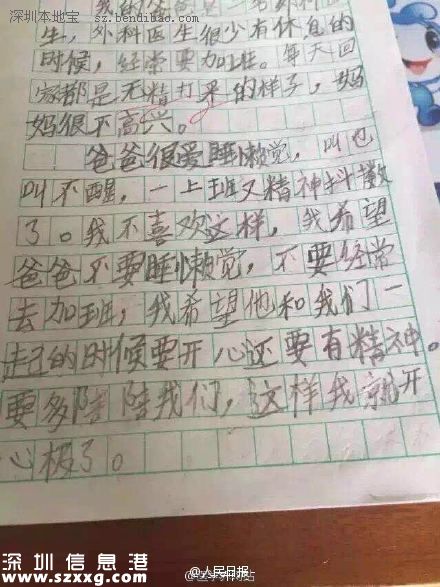 深圳本地宝
sz.bendibao.com
我的爸爸是一名外科医
生，外科医生很少有休息的
时候，经常要加班。每天回
家都是无精打采的样子，妈
妈很不高兴。
爸爸很爱睡懒觉，叫也
叫不醒，一上班又精神抖擞
了。我不喜欢这样，我希望
爸爸不要睡懒觉，不要经常
去加班，我希望他和我们一
起的时候要开心还要有精神。
要多陪陪我们，这样我就开
心极了。
深圳信息港
www.szxxg.com
@人民日报